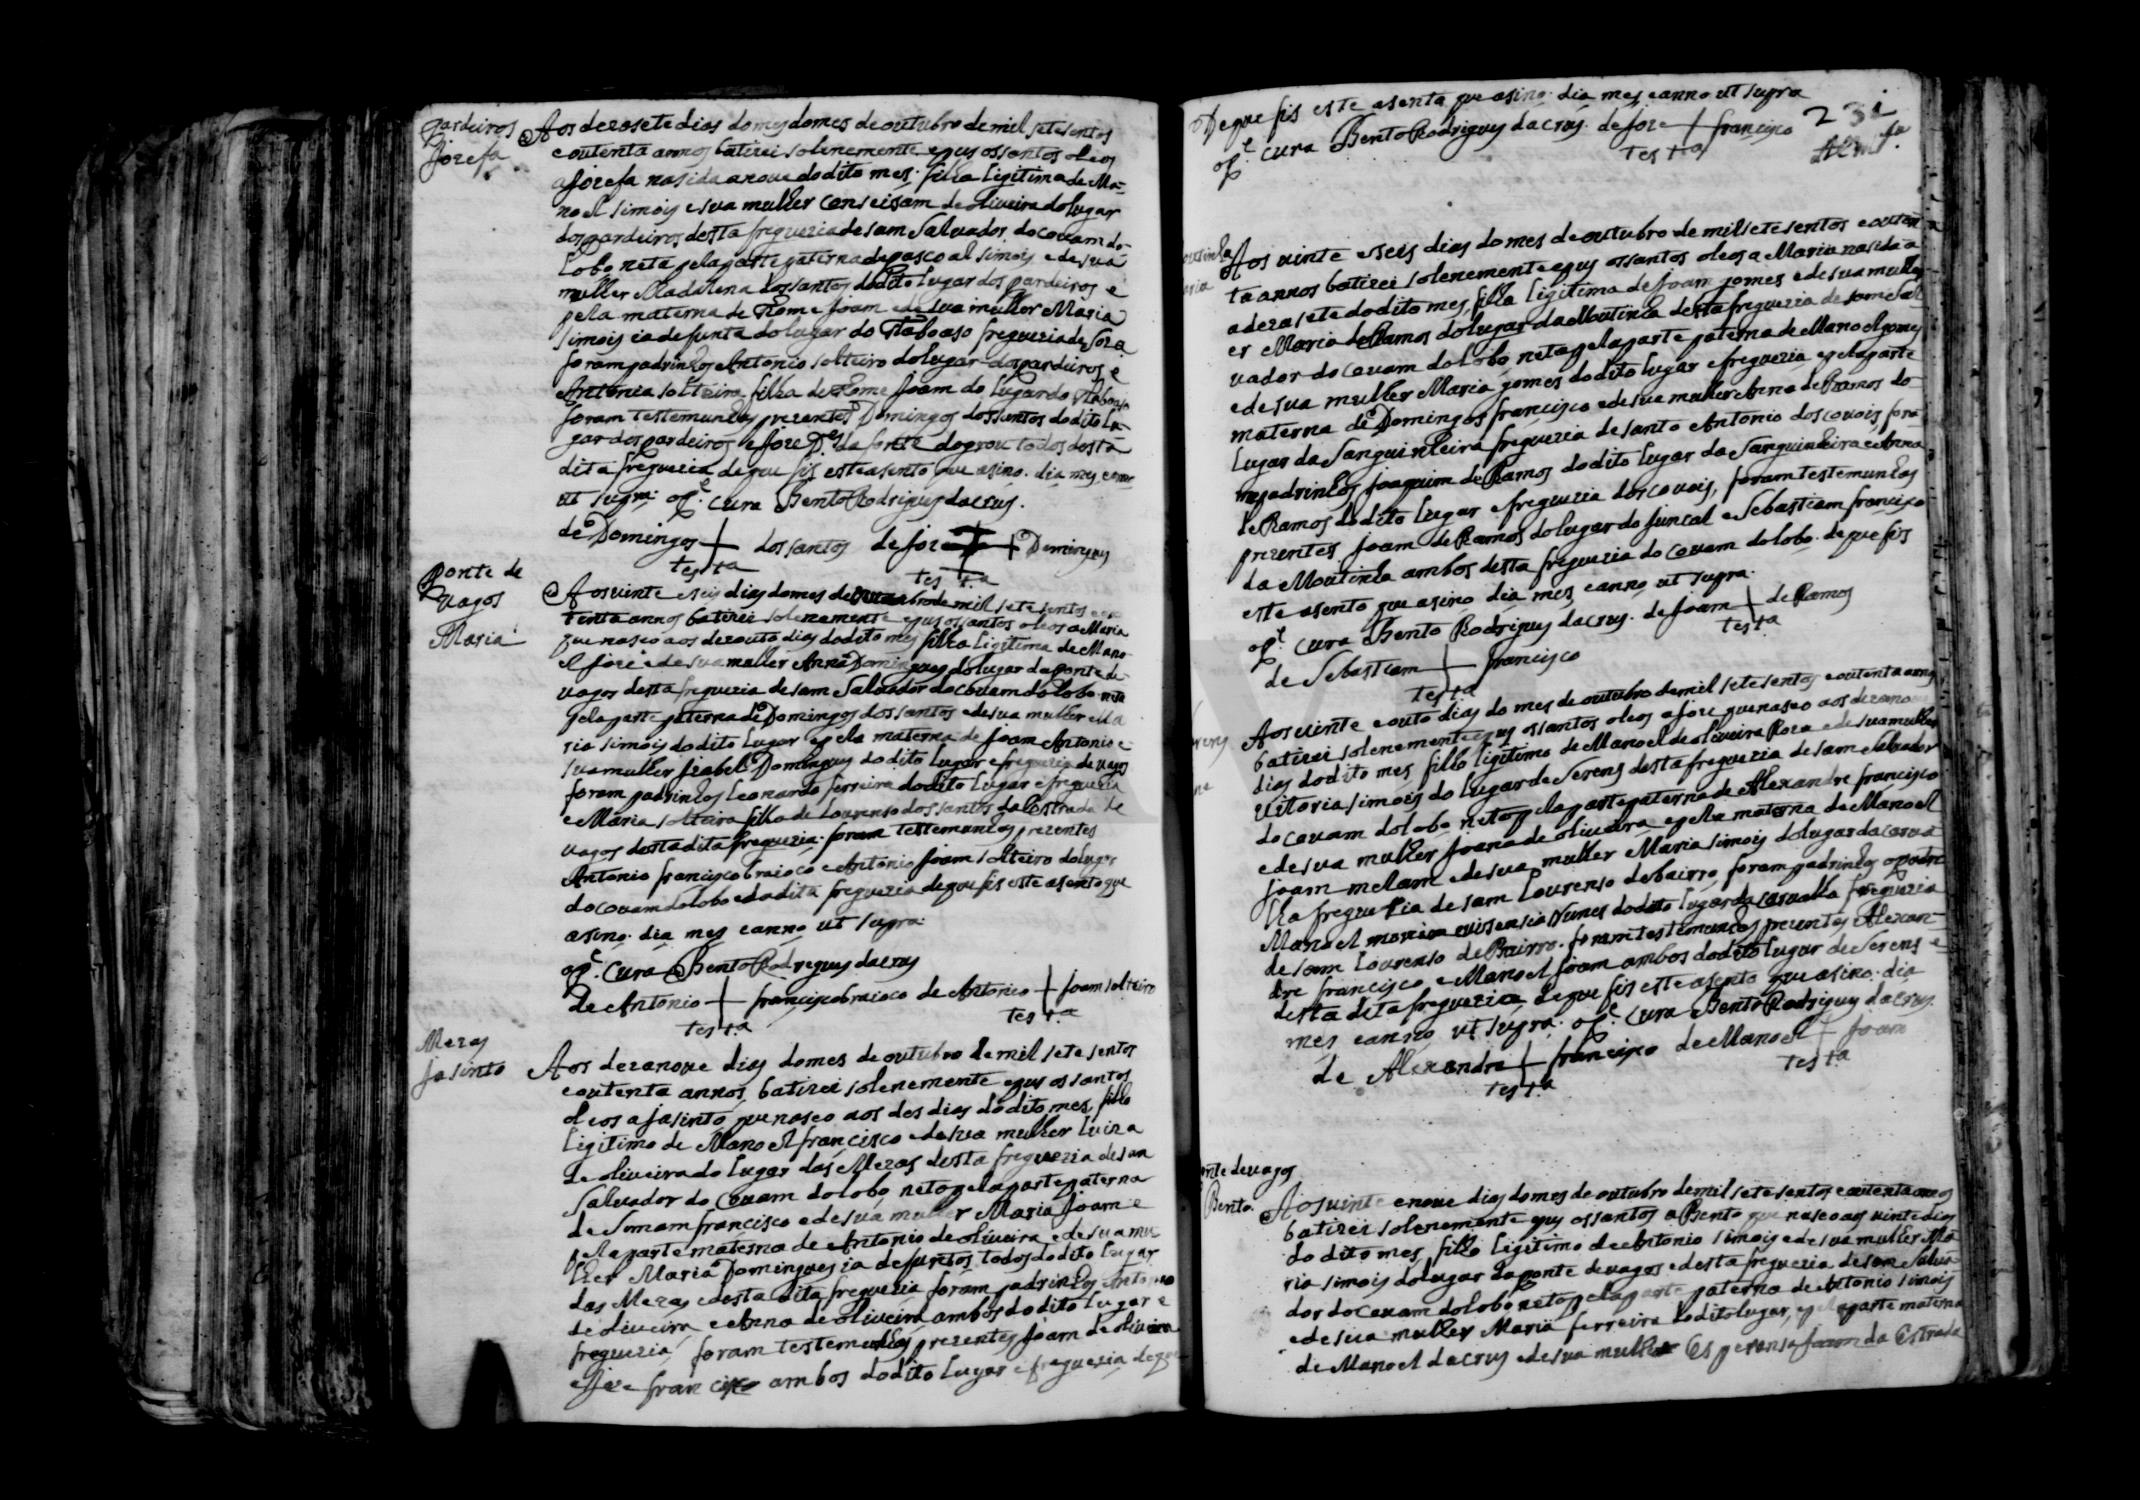 pardeiros
Jozefa
Aos dezasete dias do mes do mes de outubro de mil setesentos
e outenta annos batizei solenemente e pus os santos oleos
a Jozefa nasida a nove do dito mes. filha ligitima de Ma-
noel simois e sua mulher Conseisam de oliveira do lugar
dos pardeiros desta freguezia de sam Salvador do covam do
lobo neta pela parte paterna de pascoal simois e de sua
mulher Madalena dos santos do dito lugar dos pardeiros e
pela materna de Thome Joam e de sua mulher Maria
simois ia defunta do lugar do Taboaso freguezia de Soza
foram padrinhos Antonio solteiro do lugar dos pardeiros e
Antonia solteira filha de Thome Joam do lugar do Taboaso
foram testemunhas prezentes Domingos dos santos do dito lu-
gar dos pardeiros e Joze D.es da fonte do grou todos desta
dita freguezia de que fis este asento que asino. dia mes e anno
ut supra. o P.e cura Bento Rodrigues da crus.
de Domingos + dos santos de Joze + Domingues
test.a test.a
ponte de
vagos
Maria
Aos vinte e seis dias do mes de outubro de mil setesentos e ou
tenta annos batizei solenemente e pus os santos oleos a Maria
que nasco aos dezouto dias do dito mes filha ligitima de Mano-
el Joze e de sua mulher Anna Domingues do lugar da ponte de
vagos desta freguezia de sam Salvador do covam do lobo neta
pela parte paterna de Domingos dos santos e de sua mulher Ma
ria simois do dito lugar e pela materna de Joam Antonio e
sua mulher Izabel Domingues do dito lugar e freguezia de vagos
foram padrinhos Leonardo ferreira do dito lugar e freguezia
e Maria solteira filha de Lourenso dos santos da Estrada de
vagos desta dita freguezia. foram testemunhas prezentes
Antonio francisco braioco e Antonio Joam solteiro do lugar
do covam do lobo e da dita freguezia de que fis este asento que
asino. dia mes e anno ut supra.
o P.e Cura Bento Rodrigues da crus
de Antonio + francisco braioco de Antonio + Joam solteiro
test.a test.a
Mezas
Jasinto
Aos dezanove dias do mes de outubro de mil setesentos
e outenta annos batizei solenemente e pus os santos
oleos a Jasinto que nasco aos des dias do dito mes, filho
ligitimo de Manoel francisco e de sua mulher Luiza
de oliveira do lugar das Mezas desta freguezia de sam
Salvador do Covam do lobo neto pela parte paterna
de Simam francisco e de sua mulher Maria Joam e
pela parte materna de Antonio de oliveira e de sua mu-
lher Maria Domingues ia defuntos todos do dito lugar
das Mezas e desta dita freguezia foram padrinhos Antonio
de oliveira e Anna de oliveira ambos do dito lugar e
freguezia foram testemunhas prezentes Joam de oliveira
e Joze francisco ambos do dito lugar e freguezia de que
De que fis este asento que asino. dia mes e anno ut supra
231
o P.e cura Bento Rodrigues da crus. de Joze + francisco
test.a
Aos vinte e seis dias do mes de outubro de mil setesentos e outen
ta annos batizei solenemente e pus os santos oleos a Maria nasida a
a dezasete do dito mes, filha ligitima de Joam gomes e de sua mulh
er Maria de Ramos do lugar da Moutinha desta freguezia de sam Sal
vador do covam do lobo neta pela parte paterna de Manoel gomes
e de sua mulher Maria gomes do dito lugar e freguezia, e pela parte
materna de Domingos francisco e de sua mulher Anna de Ramos do
lugar da Sanguinheira freguezia de santo Antonio dos covois, fora
m padrinhos Joaquim de Ramos do dito lugar da Sanguinheira e Anna
de Ramos do dito lugar e freguezia dos covois, foram testemunhas
prezentes Joam de Ramos do lugar do Juncal e Sebastiam francisco
da Moutinha ambos desta freguezia do covam do lobo. de que fis
este asento que asino dia mes e anno ut supra.
o P.e cura Bento Rodrigues da crus. de Joam + de Ramos
test.a
de Sebastiam + francisco
test.a
Aos vinte e outo dias do mes de outubro de mil setesentos e outenta annos
batizei solenemente e pus os santos oleos a Joze que nasco aos dezanove
dias do dito mes, filho ligitimo de Manoel de oliveira Roza e de sua mulher
Vitoria simois do lugar de Serens desta freguezia de sam Salvador
do covam do lobo neto pela parte paterna de Alexandre francisco
e de sua mulher Joana de oliveira e pela materna de Manoel
Joam melam e de sua mulher Maria simois do lugar da carva
lha freguezia de sam Lourenso de bairro, foram padrinhos o padre
Manoel e Nunes do dito lugar da carvalha freguezia
de sam Lourenso de Bairro. foram testemunhas prezentes Alexan-
dre francisco, e Manoel Joam ambos do dito lugar de Serens e
desta dita freguezia de que fis este asento que asino. dia
mes e anno ut supra. o P.e cura Bento Rodrigues da crus.
de Alexandre + francisco de Manoel + Joam
test.a test.a
nte de vagos
Bento.
Aos vinte e nove dias do mes de outubro de mil setesentos e outenta annos
batizei solenemente e pus os santos a Bento que nasco aos vinte dias
do dito mes, filho ligitimo de Antonio simois e de sua mulher Ma
ria simois do lugar da ponte de vagos e desta freguezia de sam Salva-
dor do Covam do lobo neto pela parte paterna de Antonio simois
e de sua mulher Maria ferreira do dito lugar, e pela parte materna
de Manoel da crus e de sua mulher Esperansa Joam da Estrada